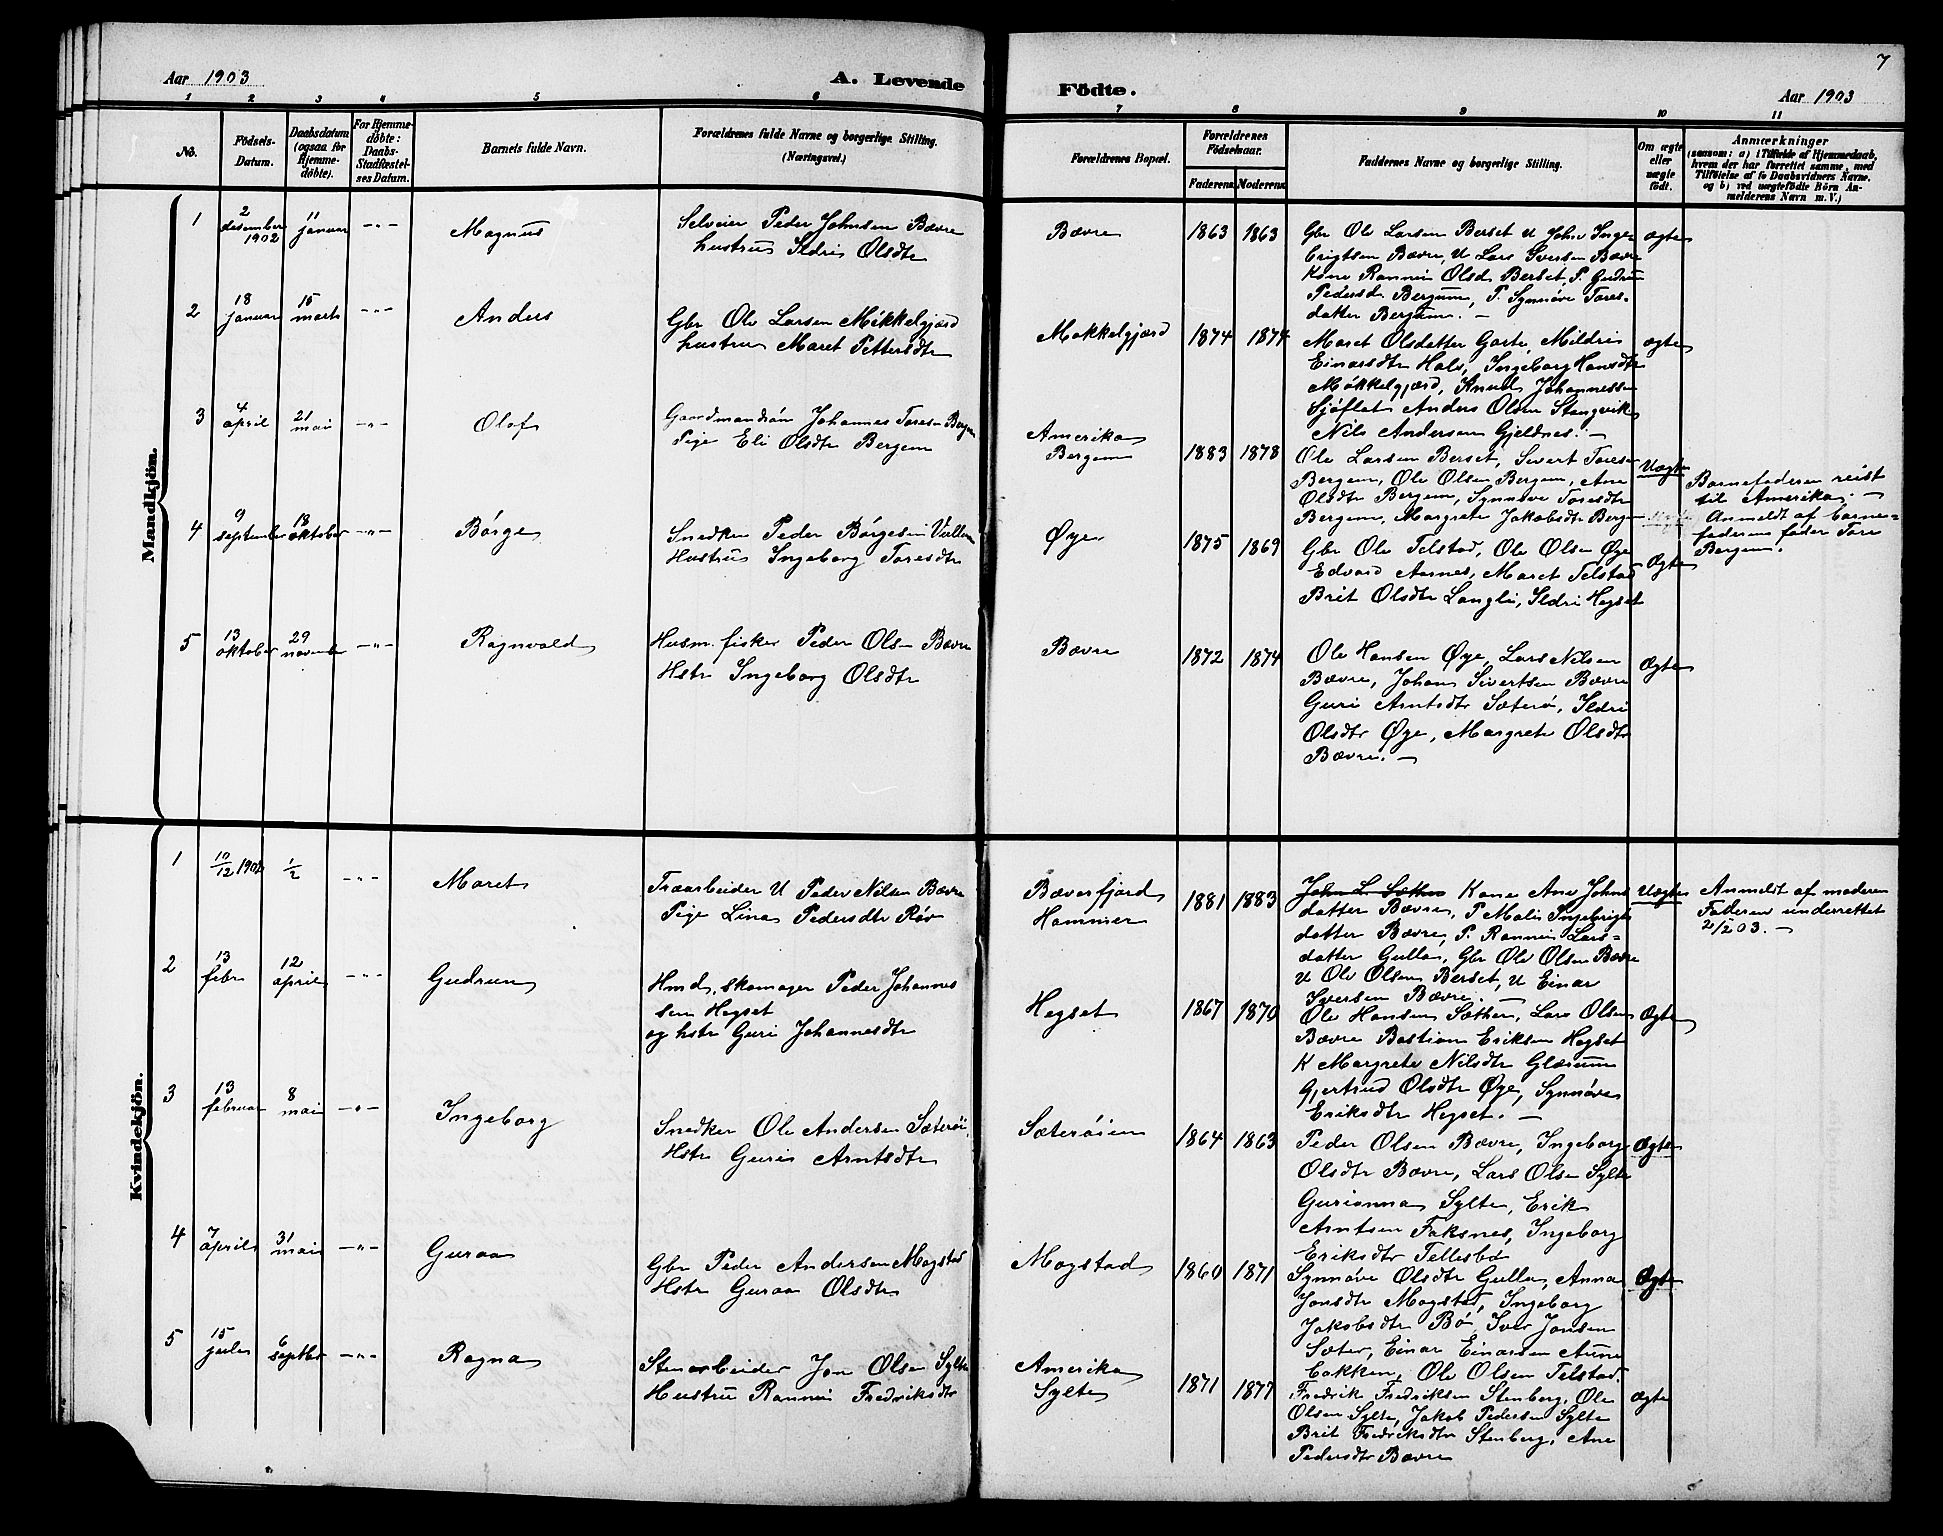 7
Aar 1903
A. Levende
Fødte.
Aar 1903
1 2 3 4 5 6 7 8 9 10 11
No.
Födsels-
Datum.
Daabsdatum
(ogsaa for
Hjemme-
döbte).
For Hjemme-
döbte:
Daabs-
Stadfæstel-
ses Datum.
Barnets fulde Navn.
Forældrenes fulde Navne og borgerlige Stilling.
(Næringsvei.)
Forældrenes Bopæl.
Forældrenes
Födselsaar.
Faderens. Moderens.
Faddernes Navne og borgerlige Stilling.
Om ægte
eller
uægte
födt.
Anmærkninger
(saasom: a) i Tilfælde af Hjemmedaab,
hvem der har forrettet samme, med
Tilföielse af to Daabsvidners Navne,
og b) ved uægtefödte Börn An-
melderens Navn m. V.)
Mandkjön.
1
2
desember
1902
11
januar
-"-
Magnus
Selveier Peder Johnsen Bævre
hustru Ildri Olsdtr
Bævre
1863 1863
Gbr Ole Larsen Berset U John Inge
Erigtsen Bævre, U Lars Iversen Bævre
Kone Rannei Olsd. Berset, P. Gudrun
Pedersd. Bergum, P. Synnøve Tores-
datter Bergum. -
ægte
2
18
januar
15
marts
-"-
Anders
Gbr Ole Larsen Mikkelgjærd
hustru Maret Pettersdtr
Møkkelgjærd
1874 1874
Maret Olsdatter Garte, Mildri
Einarsdtr Hals, Ingeborg Hansdtr
Møkkelgjærd, Knud Johannessen
Sjøflat Anders Olsen Stangvik
Nils Andersen Gjeldnes. -
ægte
3
4
april
21
mai
-"-
Olof
Gaardmandsøn Johannes Toresn Bergem
Pige Eli Olsdtr Bergem
Amerika
Bergem
1883 1878
Ole Larsen Berset, Sivert Toresen
Bergem, Ole Olsen Bergem, Ane
Olsdtr Bergem, Synnøve Toresdtr
Bergem, Margrete Jakobsdtr Bergem
Uægte
Barnefaderen reist
til Amerika. -
Anmeldt af barne-
faderens fader Tore
Bergem.
4
9
september
18
oktober
-"-
Børge
Snedker Peder Børgesen Vullum
Hustru Ingeborg Toresdtr
Øye
1875 1869
Gbr Ole Telstad, Ole Olsen Øye
Edvard Aarnes, Maret Telstad
Brit Olsdtr Langli, Ildri Hegset
Ægte
5
13
oktober
29
november
-"-
Ragnvald
Husm. fisker Peder Olsen Bævre
Hstr Ingeborg Olsdtr
Bævre
1872 1874
Ole Hansen Øye, Lars Nilsen
Bævre, Johan Sivertsen Bævre
Guri Arntsdtr Sæterø, Ildri
Olsdtr Øye, Margrete Olsdtr
Bævre. -
Ægte
Kvindekjön.
1
10/12 1902
1/2
-"-
Maret
Træarbeider U Peder Nilsen Bævre
Pige Lina Pedersdtr Røv
Bæverfjord
Hammer
1881 1883
John L. Sæther Kone Ane Johns
datter Bævre, P Mali Ingebrigts
datter Bævre, P. Rannei Lars-
datter Gulla, Gbr Ole Olsen Bævre
U Ole Olsen Berset, U Einar
Iversen Bævre. -
Uægte
Anmeldt af moderen
Faderen underrettet
2/2 03. -
2
13
febr
12
april
-"-
Gudrun
Hmd, skomager Peder Johannes
sen Hegset
og hstr Guri Johannesdtr
Hegset
1867 1870
Ole Hansen Sæther, Lars Olsen
Bævre Bastian Eriksen Hegset
K Margrete Nilsdtr Glærum
Gjertrud Olsdtr Øye, Synnøve
Eriksdtr Hegset. -
Ægte
3
13
februar
8
mai
-"-
Ingeborg
Snedker Ole Andersen Sæterøi,
Hstr Guri Arntsdtr
Sæterøien
1864 1863
Peder Olsen Bævre, Ingeborg
Olsdtr Bævre, Lars Olsen Sylte
Gurianna Sylte, Erik
Arntsen Faksnes, Ingeborg
Eriksdtr Tellesbø
Ægte
4
7
april
31
mai
-"-
Guraa
Gbr Peder Andersen Mogstad
Hstr Guraa Olsdtr
Mogstad
1860 1871
Synnøve Olsdtr Gulla, Anna
Jonsdtr Mogstad, Ingeborg
Jakobsdtr Bø Iver Jonsen
Sæter, Einar Einarsen Aune
bakken, Ole Olsen Telstad.
Ægte
5
15
juli
6
septbr
-"-
Ragna
Stenarbeider Jon Olsen Sylte
Hustru Rannei Fredriksdtr
Amerika
Sylte
1871 1877
Fredrik Fredriksen Stenberg, Ole
Olsen Sylte, Jakob Pedersen Sylte
Brit Fredriksdtr Stenberg, Ane
Pedersdtr Bævre
Ægte